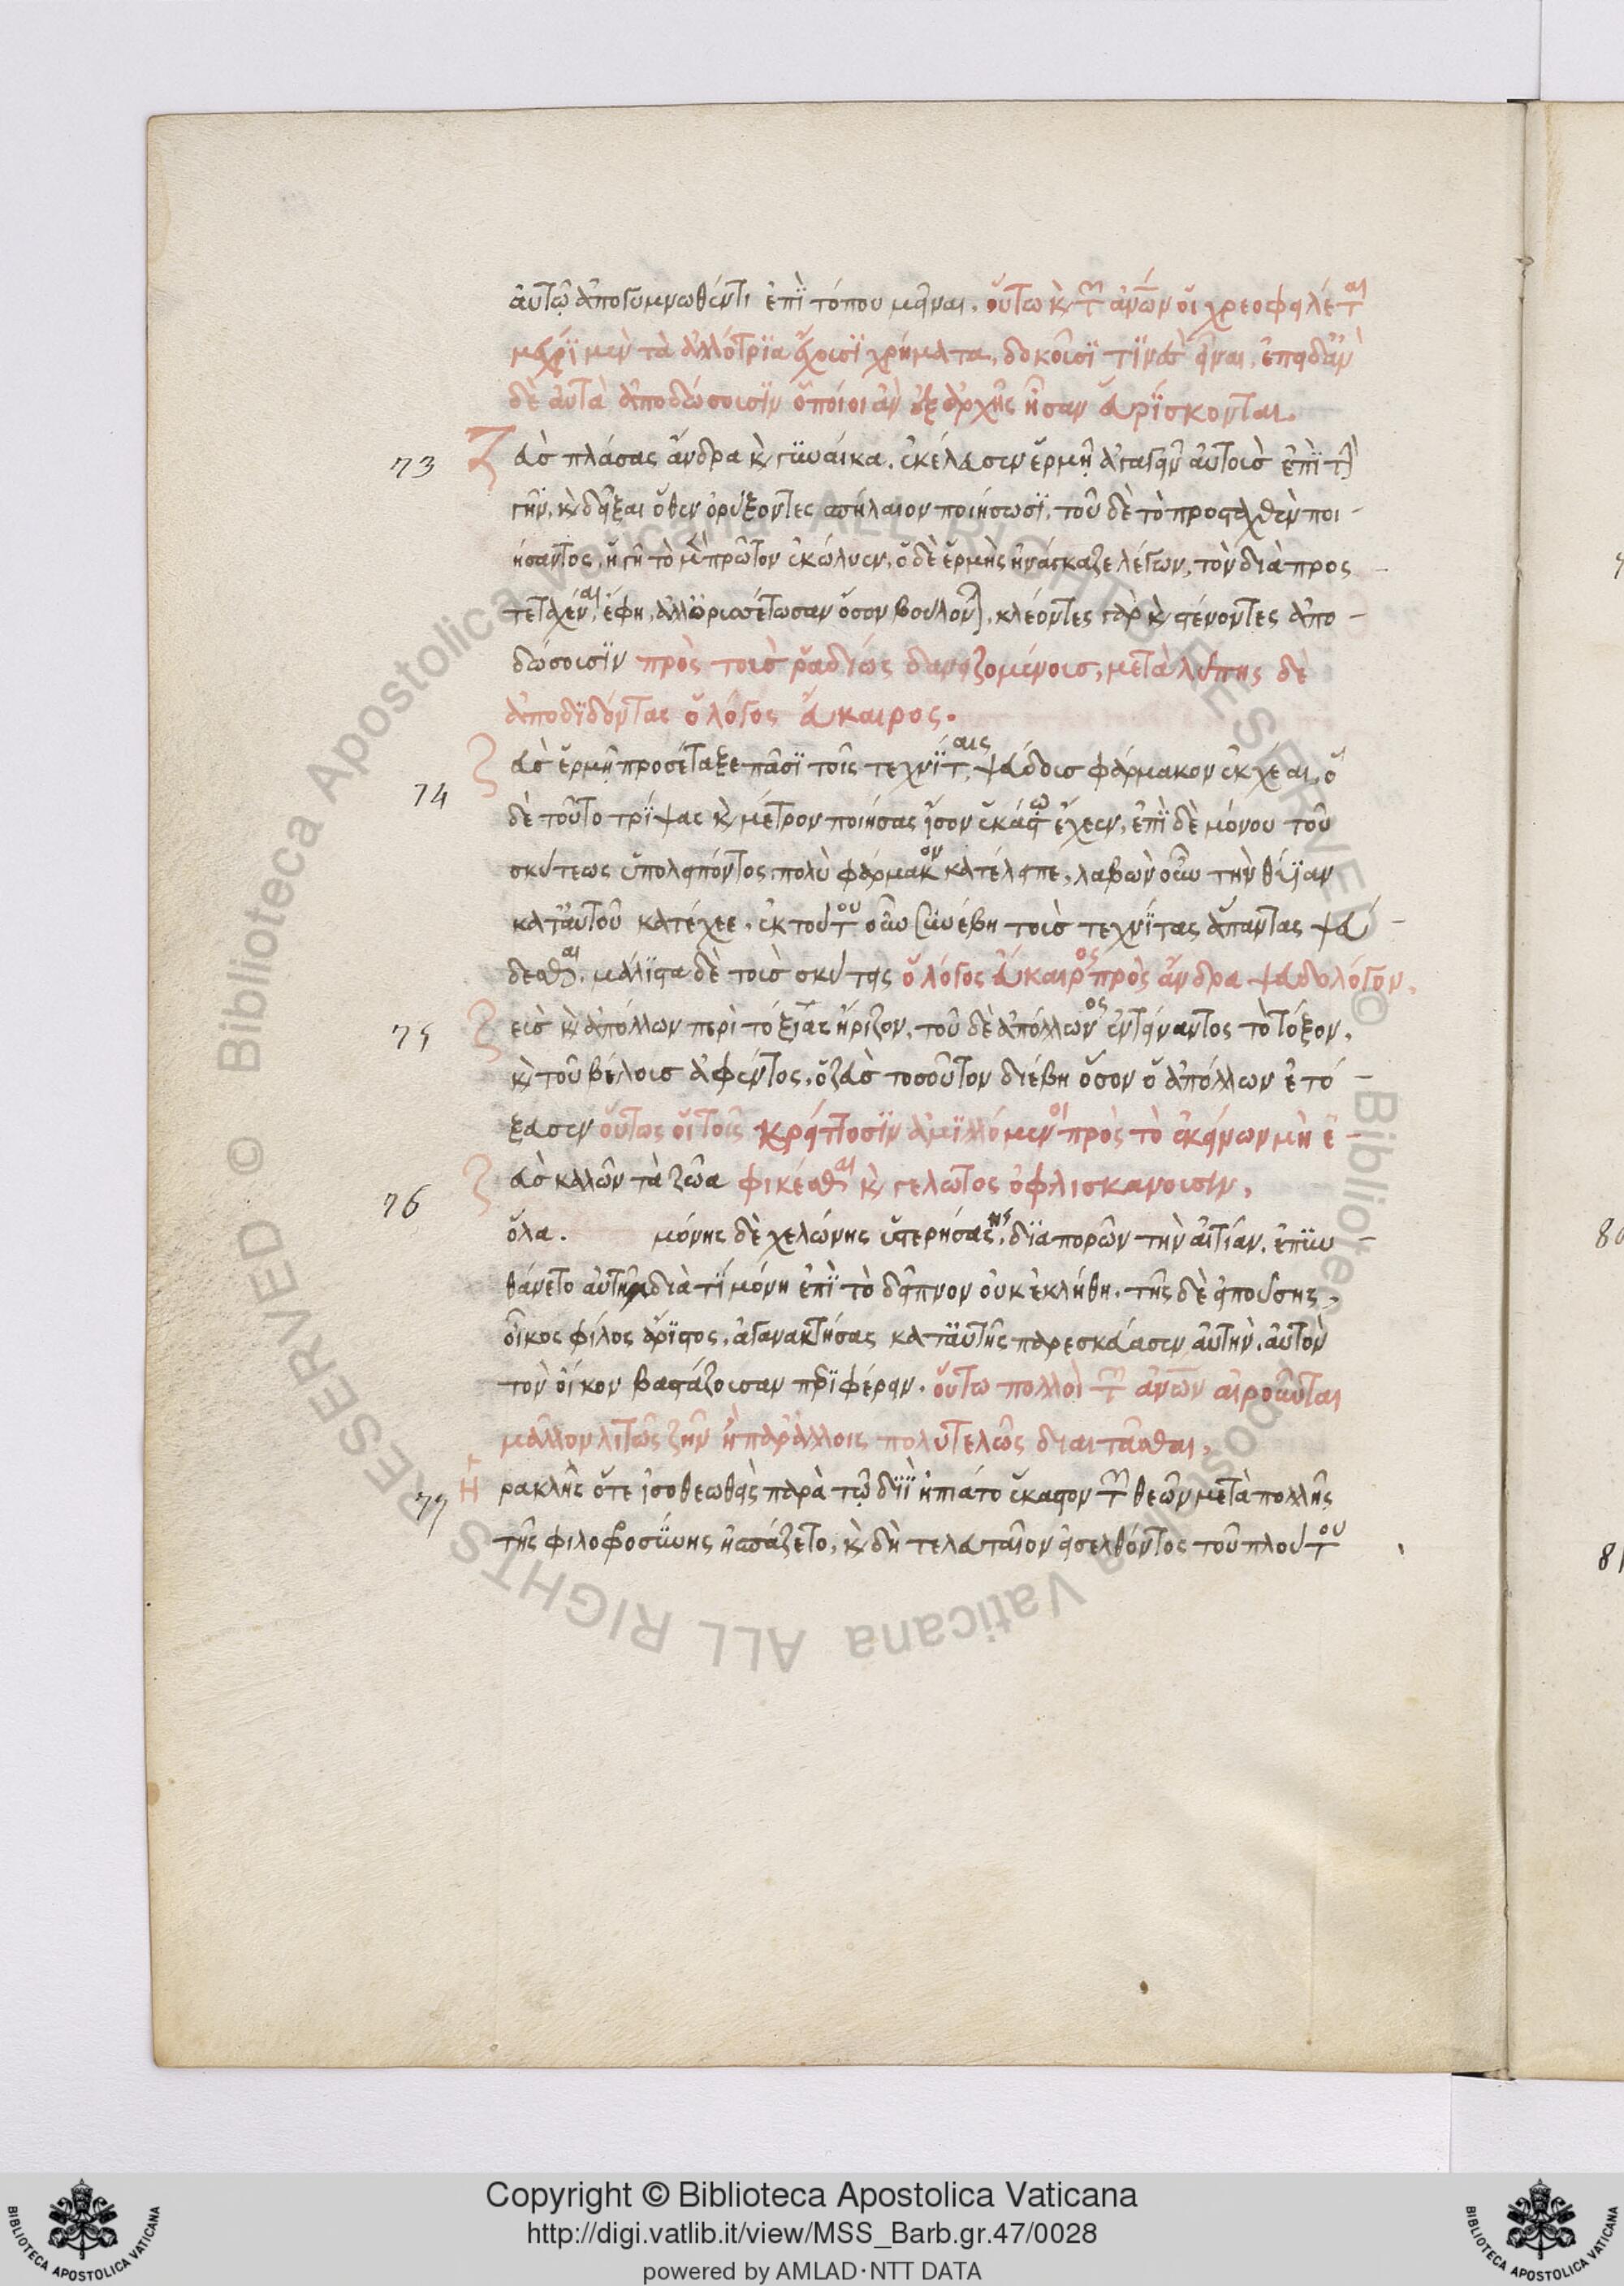 αὐτῷ ἀπογυμνωθέντι ἐπὶ τόπου μεῖναι. οὕτω κ̀ τῶν ἀνων οἱ χρεοφειλέται
μέχρι μὲν τὰ ἀλλότρια ἔχουσι χρήματα, δοκοῦσι τινὲς εἶναι, ἐπειδὰν
δὲ αὐτὰ ἀποδώσουσιν ὁποῖοι ἂν ἐξ ἀρχῆς ἦσαν εὑρίσκονται.
73 Ζεὺς πλάσας ἄνδρα κ̀ γυναίκα. ἐκέλευσεν ἑρμῇ ἀγαγεῖν αὐτοὺς ἐπὶ τὴν
γῆν, κ̀ δεῖξαι ὅθεν ὀρύξοντες σπήλαιον ποιήσωσι. τοῦ δὲ τὸ προσταχθὲν ποι-
ήσαντος, ἡ γῆ τὸ μὲν πρῶτον ἐκώλυεν. ὁ δὲ ἑρμῆς ἠνάγκαζε λέγων, τὸν δία προς-
τεταχέναι, ἔφη, ἀλλ' ὠρυσέτωσαν ὅσον βούλονται, κλέοντες γὰρ κ̀ στένοντες ἀπο-
δώσουσιν πρὸς τοὺς ῥαδίως δανειζομένους, μετὰ λύπης δὲ
ἀποδιδόντας ὁ λόγος εὔκαιρος.
74 Ζεὺς ἑρμῇ προσέταξε πᾶσι τοῖς τεχνίταις ψεύδους φάρμακον ἐκχέαι, ὁ
δὲ τοῦτο τρίψας κ̀ μέτρον ποιήσας ἴσον ἑκάστῳ ἔχεεν, ἐπὶ δὲ μόνου τοῦ
σκύτεως ὑπολειπόντος πολὺ φάρμακον κατέλειπε, λαβὼν οὖν τὴν θύιαν
κατ' αὐτοῦ κατέχεε. ἐκ τούτου οὖν συνέβη τοὺς τεχνίτας ἅπαντας ψεύ-
δεσθαι, μάλιστα δὲ τοὺς σκυτεῖς ὁ λόγος εὔκαιρος πρὸς ἄνδρα ψευδολόγον.
75 Ζεὺς κ̀ ἀπόλλων περὶ τοξίας ἤριζον. τοῦ δὲ ἀπόλλωνος ἐντείναντος τὸ τόξον,
κ̀ τοῦ βέλους ἀφέντος, ὁ ζεὺς τοσοῦτον διέβη ὅσον ὁ ἀπόλλων ἐτό-
ξευσεν οὕτως οἱ τοῖς κρείττοσιν ἁμιλλόμενοι πρὸς τὸ ἐκείνων μὴ ἐ-
76 Ζεὺς καλῶν τὰ ζῶα φικέσθαι κ̀ γέλωτος ὀφλισκανουσιν,
ὅλα. μόνης δὲ χελώνης ὑστερησάσης, διαπορῶν τὴν αἰτίαν, ἐπυν-
θάνετο αὐτὴν διὰ τί μόνη ἐπὶ τὸ δεῖπνον οὐκ ἐκλήθη. τῆς δὲ εἰπούσης,
οἶκος φίλος ἄριστος, ἀγανακτήσας κατ' αὐτῆς παρεσκεύασεν αὐτὴν, αὐτὸν
τὸν οἶκον βαστάζουσαν περιφέρειν. οὕτω πολλοὶ τῶν ἀνων αἱροῦνται
μᾶλλον λιτῶς ζῆν ἢ παρ' ἄλλοις πολυτελῶς διαιτᾶσθαι,
77 Ἡρακλῆς ὅτε ἰσοθεωθεὶς παρὰ τῷ διῒ ἡστιάτο ἕκαστον τῶν θεῶν μετὰ πολλῆς
τῆς φιλοφροσύνης ἠσπάζετο, κ̀ δὴ τελευταῖον εἰσελθόντος τοῦ πλούτου
80
81
Copyright © Biblioteca Apostolica Vaticana
http://digi.vatlib.it/view/MSS_Barb.gr.47/0028
powered by AMLAD·NTT DATA